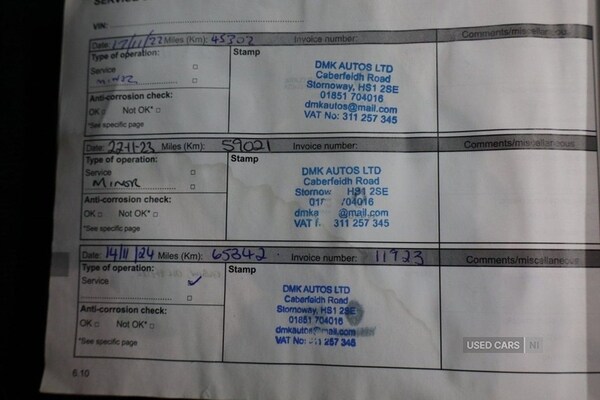 VIN:
Date: 17/11/22 Miles (Km): 45302 Invoice number: Comments/miscellaneous
Type of operation: Stamp
Service
MINOR
Anti-corrosion check:
OK Not OK*
*See specific page
DMK AUTOS LTD
Caberfeidh Road
Stornoway, HS1 2SE
01851 704016
dmkautos@mail.com
VAT No: 311 257 345
Date: 22-11-23 Miles (Km): 59021 Comments/miscellaneous
Type of operation: Stamp
Service
MINOR
Anti-corrosion check:
OK Not OK*
*See specific page
DMK AUTOS LTD
Caberfeidh Road
Stornow HS1 2SE
/04016
dmka @mail.com
VAT 311 257 345
Date: 14/11/24 Miles (Km): 65342 Invoice number: 11923 Comments/miscellaneous
Type of operation: Stamp
Service
Anti-corrosion check:
OK Not OK*
*See specific page
DMK AUTOS LTD
Caberfeidh Road
Stornoway, HS1 2SE
01851 704016
dmkautos@mail.com
VAT No: 311 257 345
6.10
USED CARS NI